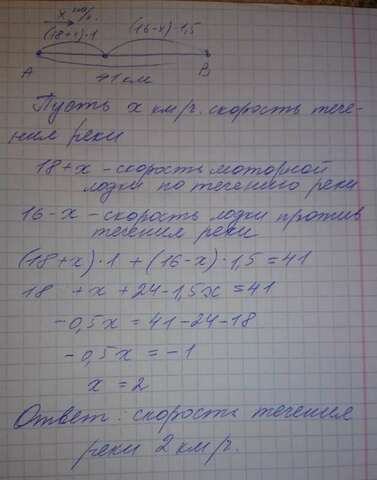 x км/ч.
(18+x)·1 (16-x)·1,5
A B
41 км
Пусть x км/ч. скорость тече-
ния реки
18+x - скорость моторной
лодки по течению реки
16-x - скорость лодки против
течения реки
(18+x)·1 + (16-x)·1,5 = 41
18 + x + 24 - 1,5x = 41
-0,5x = 41-24-18
-0,5x = -1
x = 2
Ответ: скорость течения
реки 2 км/ч.